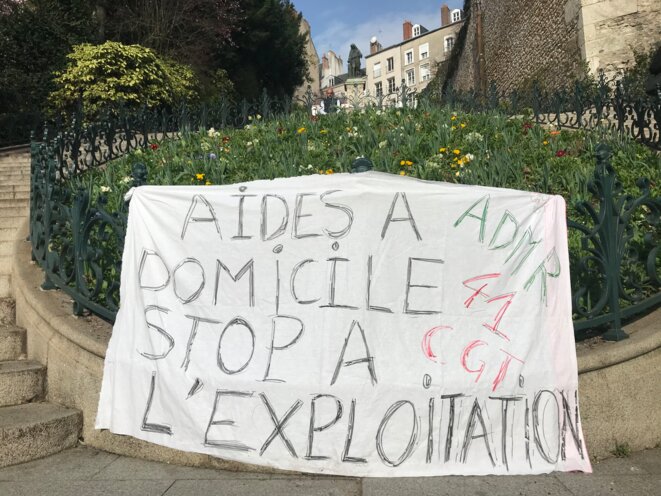 AIDES A ADMR
DOMICILE 41
STOP A CGT
L'EXPLOITATION